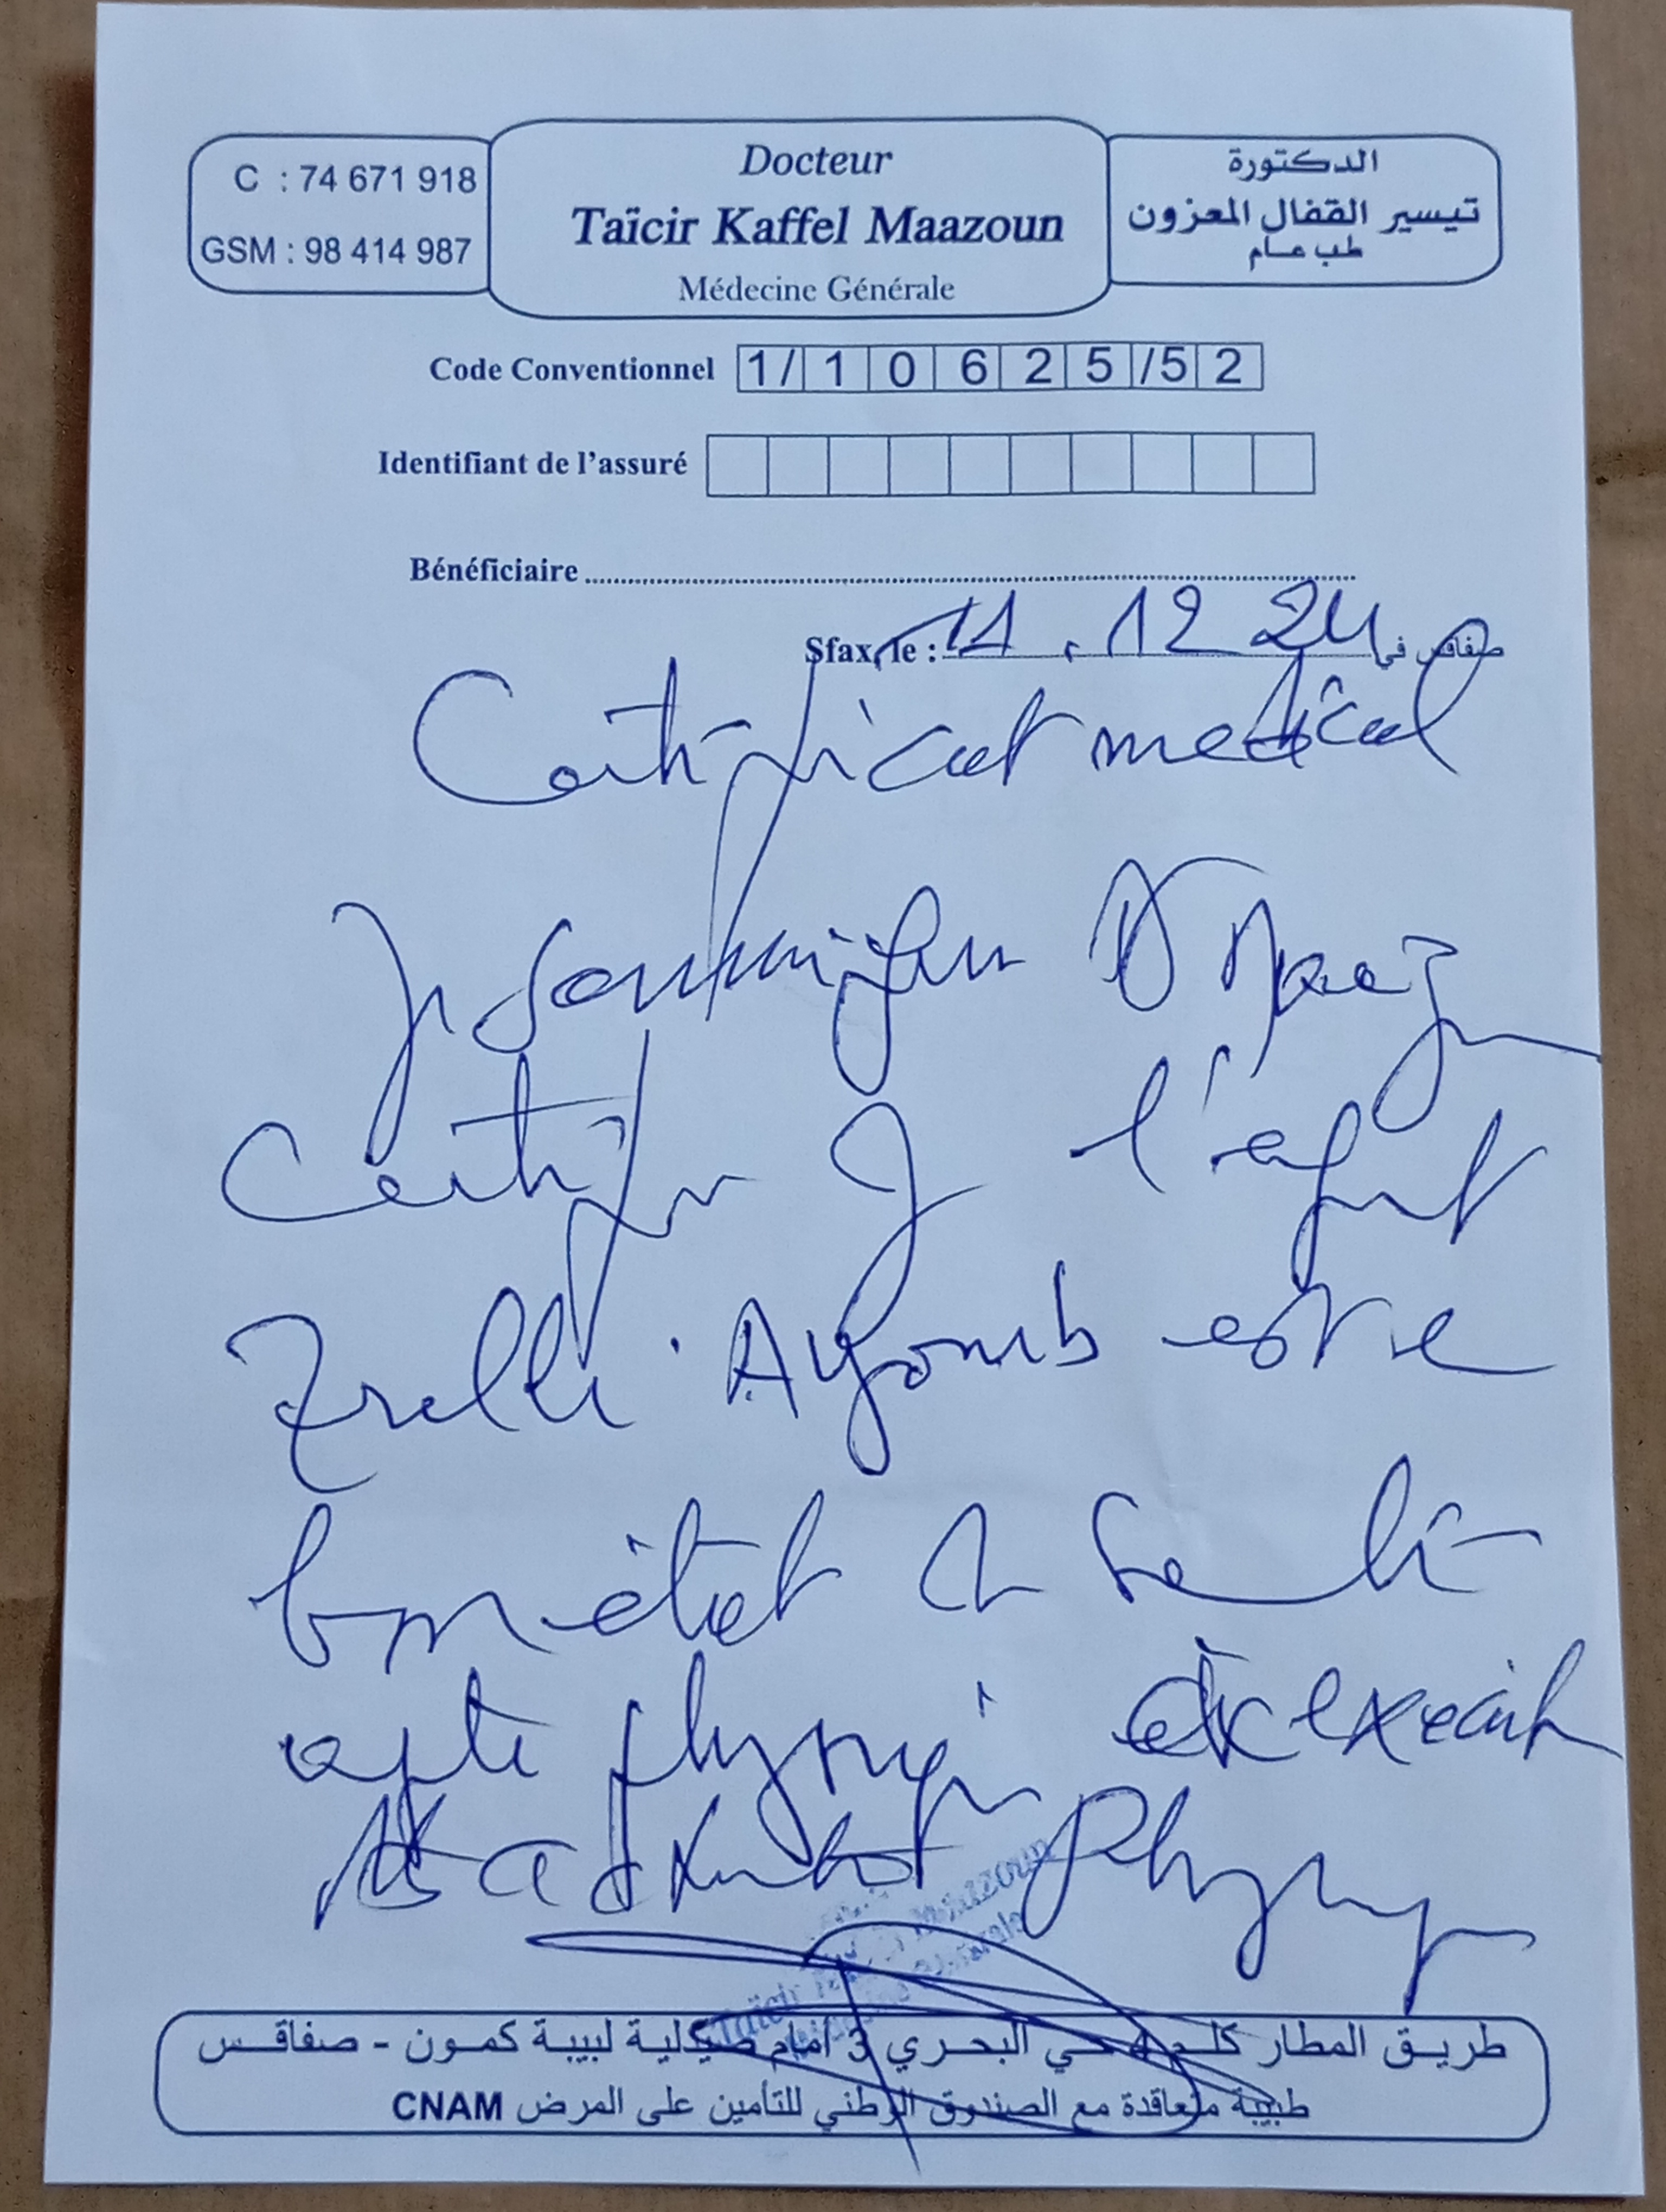 C : 74 671 918
GSM : 98 414 987
Docteur
Taïcir Kaffel Maazoun
Médecine Générale
الدكتورة
تيسير القفال المعزون
طب عام
Code Conventionnel 1/10625/52
Identifiant de l'assuré
Bénéficiaire
Sfax, le : 11.12 24 صفاقس في
Certificat medical
Je soussignée Dr Maaz
Certifie que l'enfant
Zrelli Ayoub est en
bon état de santé
apte physiq
Physiq
طريق المطار كلم 4 حي البحري 3 أمام صيدلية لبيبة كمون - صفاقس
طبيبة متعاقدة مع الصندوق الوطني للتأمين على المرض CNAM